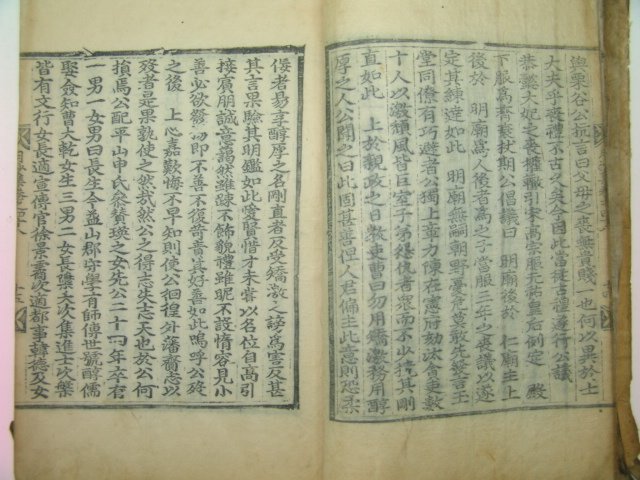 與栗谷公抗言曰父母之喪無貴賤一也何以異於士
大夫乎喪禮不古父矣今因此當從古禮遂行公議
恭懿大妃之喪權轍引宋高宗服元祐皇后例定 殿
下服爲齊衰杖期公倡議曰 明廟後於 仁廟主上
後於 明廟爲人後者爲之子當服三年之喪議以遂
定其練達如此 明廟無嗣朝野憂危莫敢先發言王
堂同僚有巧避者公獨上章力陳在憲府劾汰會吏數
十人以激頹風皆巨室子弟怨仇者衆而不少撓其剛
直如此 上於親政之日敎吏曹曰勿用矯激務用醇
厚之人公聞之曰此固甚善但人君偏主此意則恐柔
佞者易享醇厚之名剛直者反受矯激之謗爲害反甚
其言果驗其明鑑如此愛賢惜才未嘗以名位自高引
接賓朋誠意藹然雖踈不飾貌禮雖昵不設情容見小
善必欲發 即不善不復 賁其好善如此嗚呼公歿
之後 上心嘉歎悔不早知則使公徊徨外藩齎志以
歿者是果孰使之然哉然公之得志失志天也於公何
損焉公配平山申氏叅贊瑛之女先公二十一年卒有
一男一女男曰長生今益山郡守學有師傳世號醇儒
娶僉知曹大乾女生三男二女長 次集進士次槃
皆有文行女長適宣傳官徐景霱次適都事韓德及女